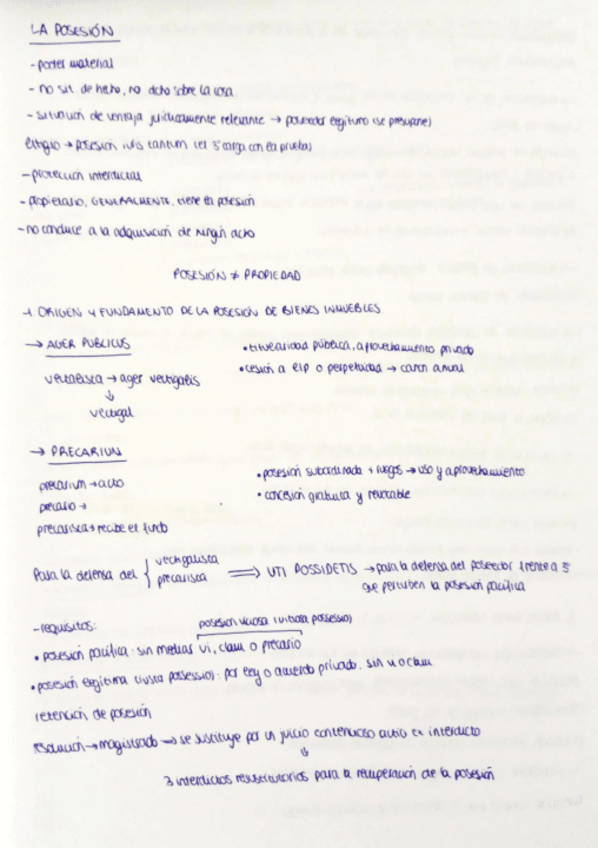 LA POSESIÓN
- poder material
- no sit. de hecho, no dcho sobre la cosa
- situación de ventaja jurídicamente relevante → poseedor legítimo (se presupone)
litigio → posesión iuris tantum (el 3º carga con la prueba)
- protección interdictal
- propietario, GENERALMENTE, tiene la posesión
- no conduce a la adquisición de ningún acto
POSESIÓN ≠ PROPIEDAD
ORIGEN Y FUNDAMENTO DE LA POSESIÓN DE BIENES INMUEBLES
→ AGER PUBLICUS
• titularidad pública, aprovechamiento privado
vectalista → ager vectigalis
• cesión a l/p o perpetuidad → canon anual
↓
vectigal
→ PRECARIUM
precarium → acto
• posesión subordinada + ruegos → uso y aprovechamiento
precario →
• concesión gratuita y revocable
precarista → recibe el fundo
Para la defensa del { vectigalista
precarista
⟹ UTI POSSIDETIS → para la defensa del poseedor frente a 3º
que perturben la posesión pacífica
- requisitos:
posesión viciosa (vitiosa possessio)
• posesión pacífica: sin mediar vi, clam o precario
• posesión legítima (iusta possessio): por ley o acuerdo privado. sin vi o clam
retención de posesión
resolución → magistrado → se sustituye por un juicio contencioso actio ex interdicto
⇓
3 interdictos restitutorios para la recuperación de la posesión